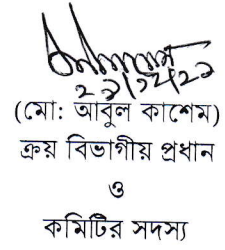 ২১/১২/২১
(মো: আবুল কাশেম)
ক্রয় বিভাগীয় প্রধান
ও
কমিটির সদস্য